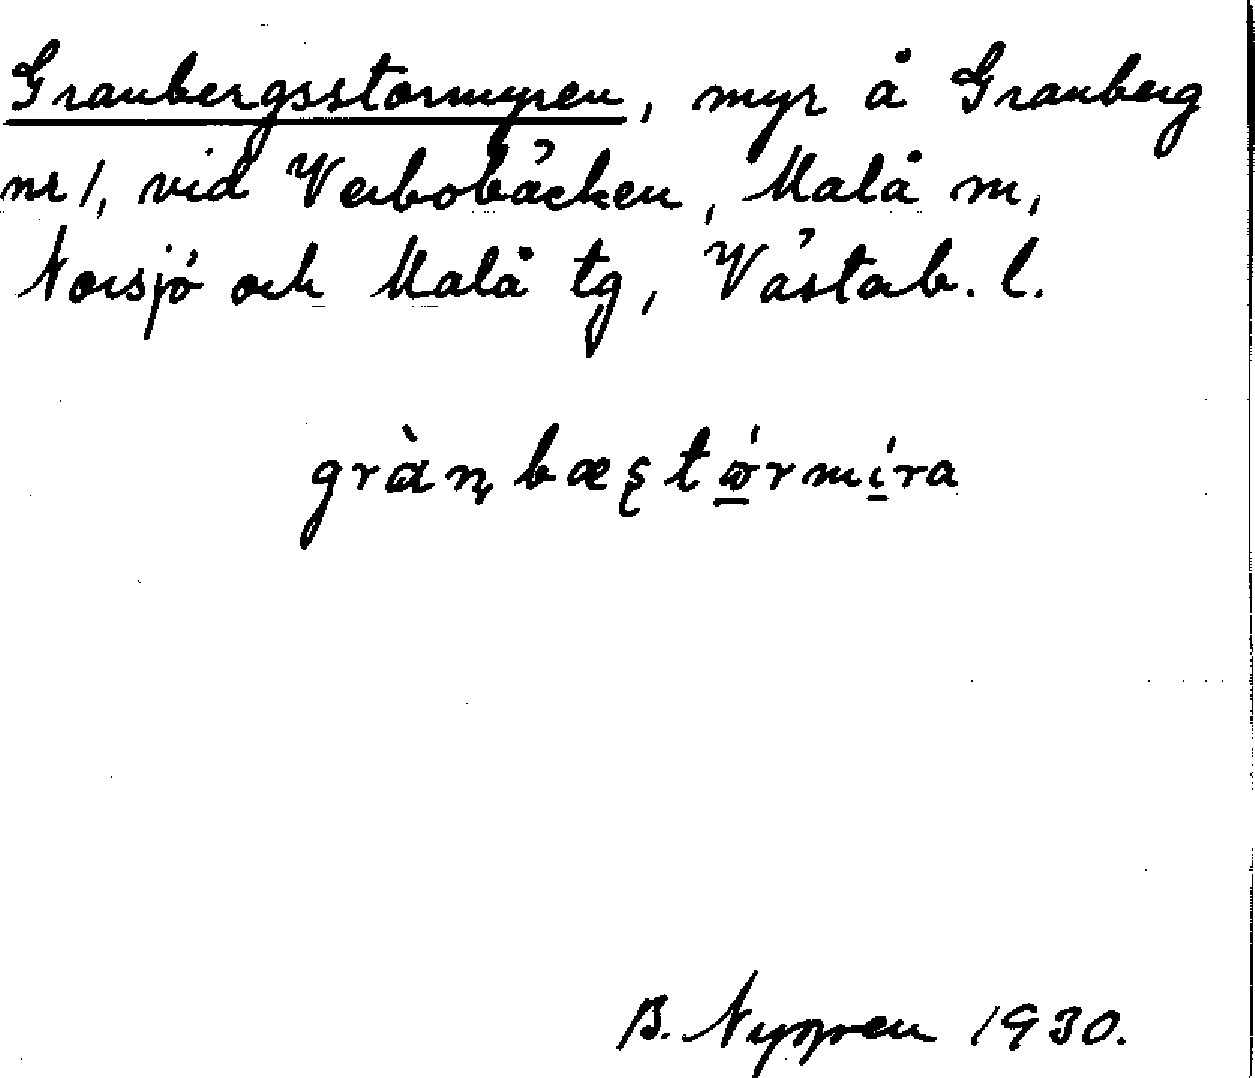 Granbergsstormyren, myr å Granberg
nr 1, vid Verbobäcken, Malå sn,
Norsjö och Malå tg, Västerb. l.
B. Nygren 1930.